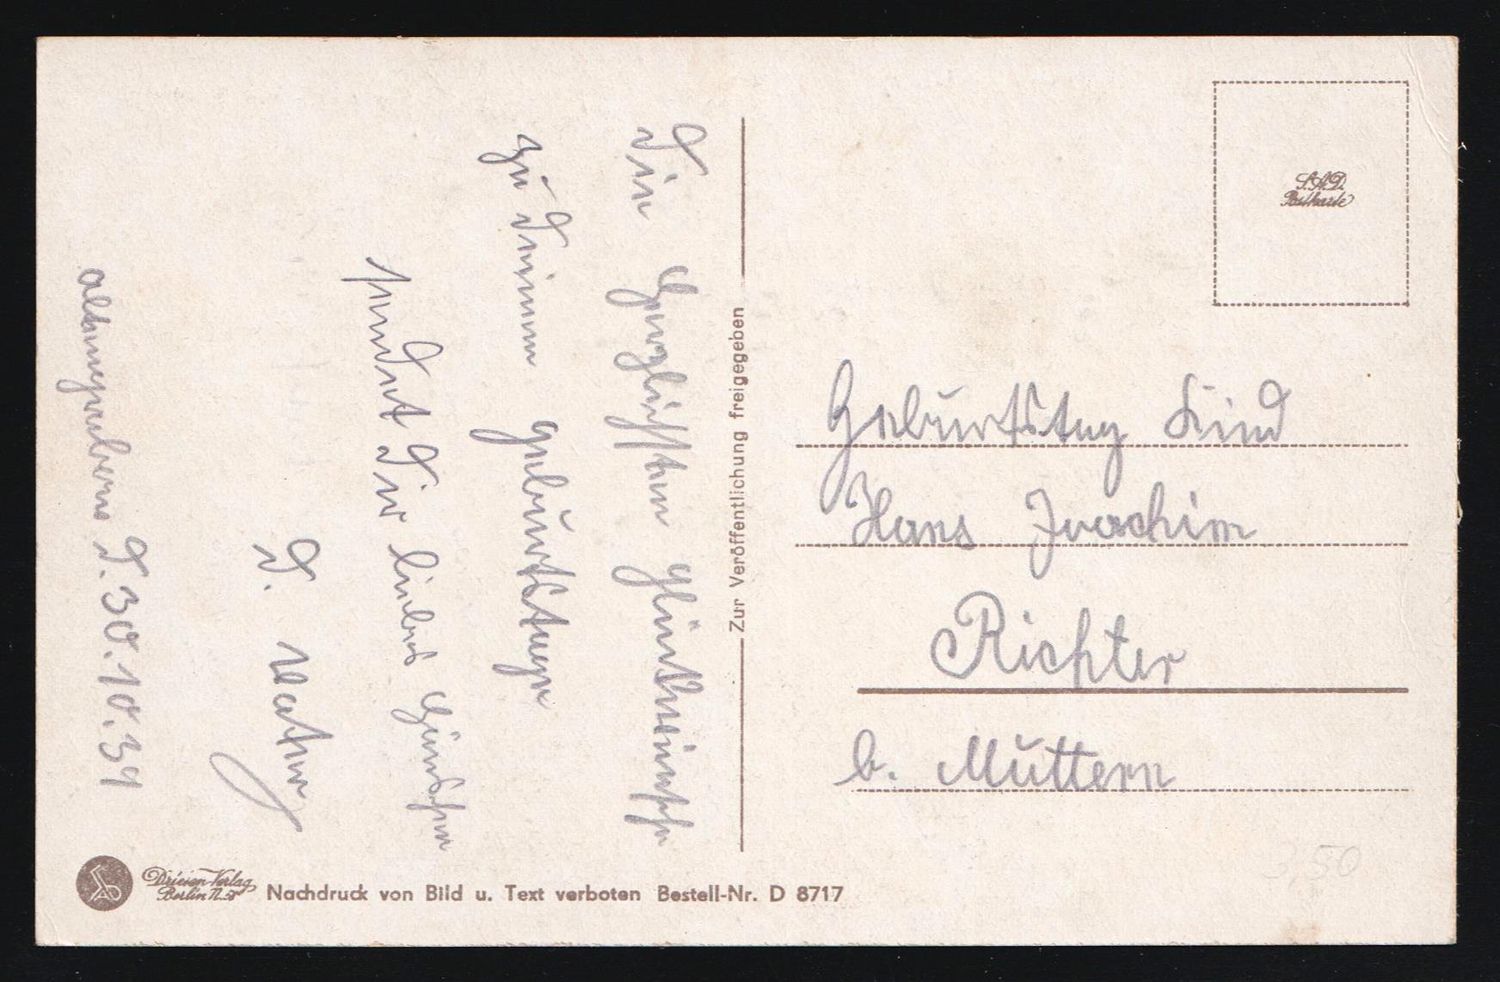 Die herzlichsten Glückwünsche
zu Deinem Geburtstage
sendet Dir liebes Hänschen
D. Vater
D. 30.10.39
Zur Veröffentlichung freigegeben
Geburtstag Kind
Hans Joachim
Richter
b. Muttern
S.A.D.
Postkarte
Driesen-Verlag
Berlin
Nachdruck von Bild u. Text verboten Bestell-Nr. D 8717
3,50